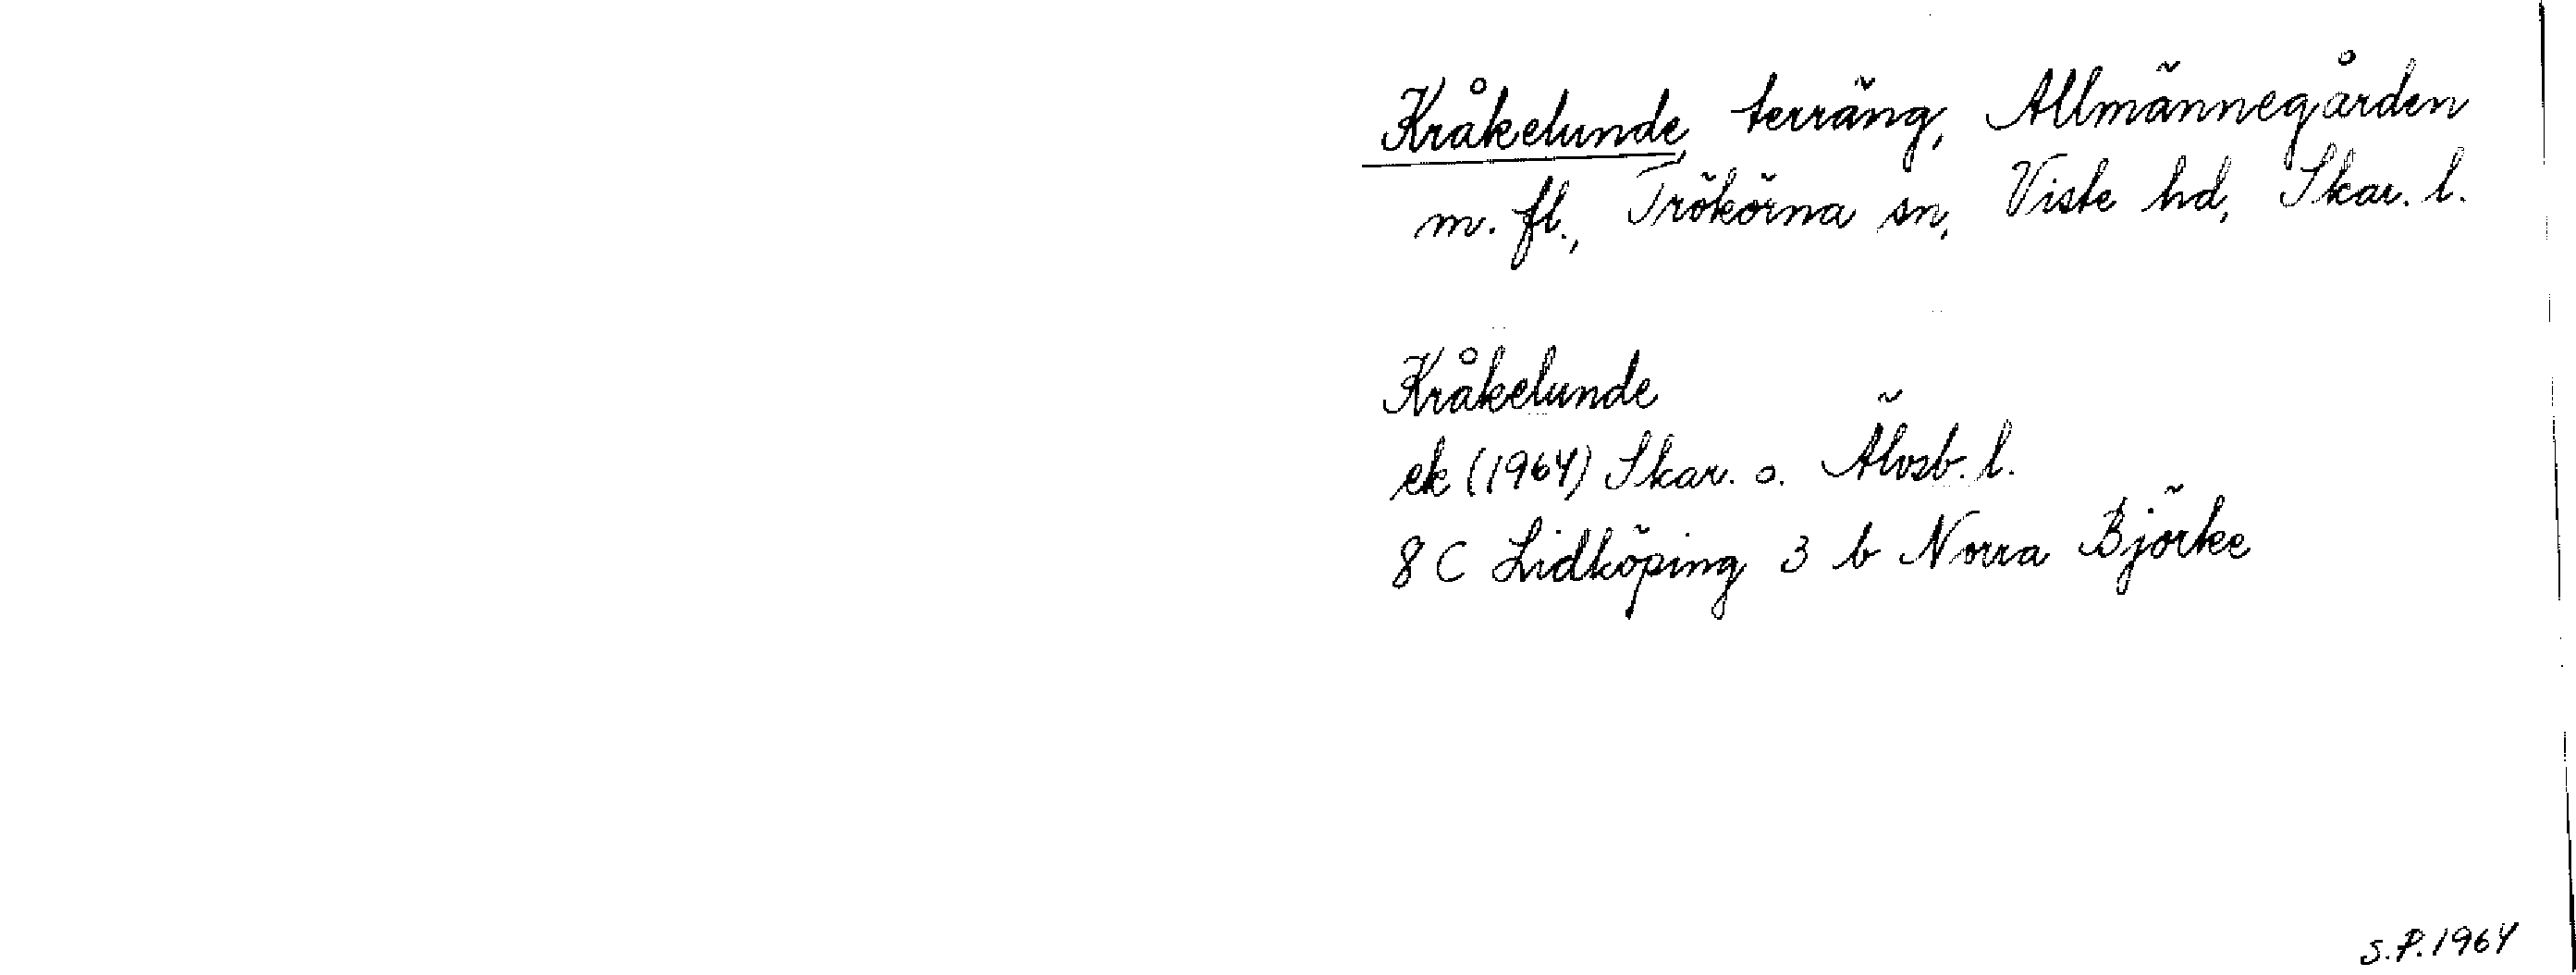 Kråkelunde, terräng, Allmännegården
m. fl., Trökörna sn, Viste hd, Skar. l.
Kråkelunde
ek (1964) Skar. o. Älvsb. l.
8 C Lidköping 3 b Norra Björke
S.P. 1964